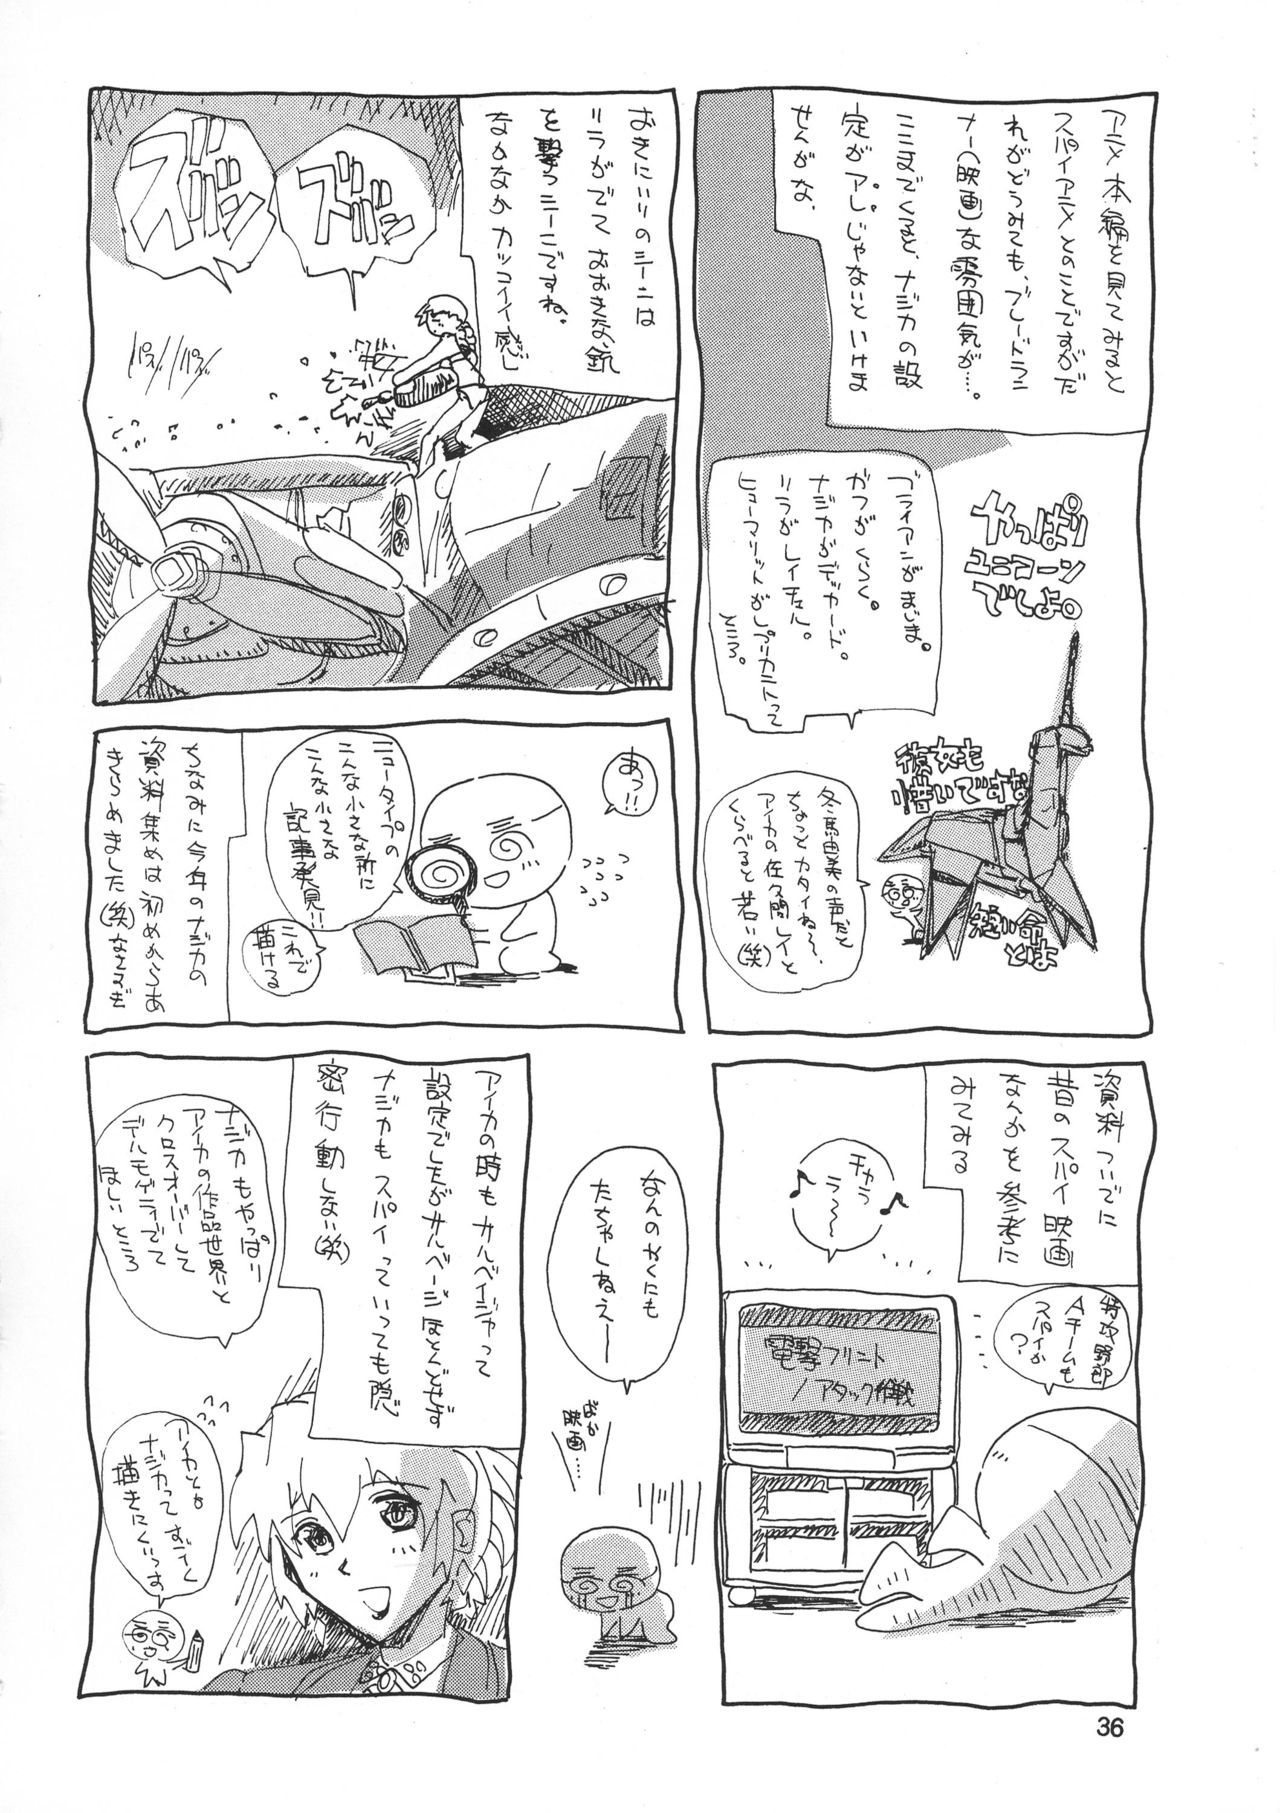 アニメ本編を見てみると
スパイアニメとのことですがだ
れがどうみても、ブレードラン
ナー(映画)な雰囲気が…。
ここまでくると、ナジカの設
定がアレじゃないといけま
せんがな。
やっぱり
ユニコーン
でしょ。
ブライアンがまじま。
ガフがいしい。
ナジカがデッカード。
リラがレイチェル。
ヒューマリットがレプリカントって
ところ。
彼女も
惜いですな
短い命
とは
冬馬由美の声だと
ちょっとカタイね〜、
アイカの佐久間レイと
くらべると若い(笑)
おきにいりのシーンは
リラがでて おおきな銃
を撃つシーンですね。
なかなかカッコイイ感じ
ズバッ
ズバッ
パス/パス
あっ!!
ニュータイプの
こんな小さな所に
こんな小さな
記事発見!!
これで
描ける
ちなみに今年のナジカの
資料集めは初めからあ
きらめました(笑)なさすぎ
資料ついでに
昔のスパイ映画
なんかを参考に
みてみる
特攻野郎
Aチームも
スパイか
?
チャラ
ラ〜〜
電撃フリント
/アタック作戦
なんのやくにも
たちゃしねえ――
ばか
映画…
アイカの時もサルベイジャって
設定でしたがサルベージほとんどせず
ナジカもスパイっていっても隠
密行動しない(笑)
ナジカもやっぱり
アイカの作品世界と
クロスオーバーして
デルモゲラでて
ほしいところ
アイカとも
ナジカってすごく
描きにくいっす
36